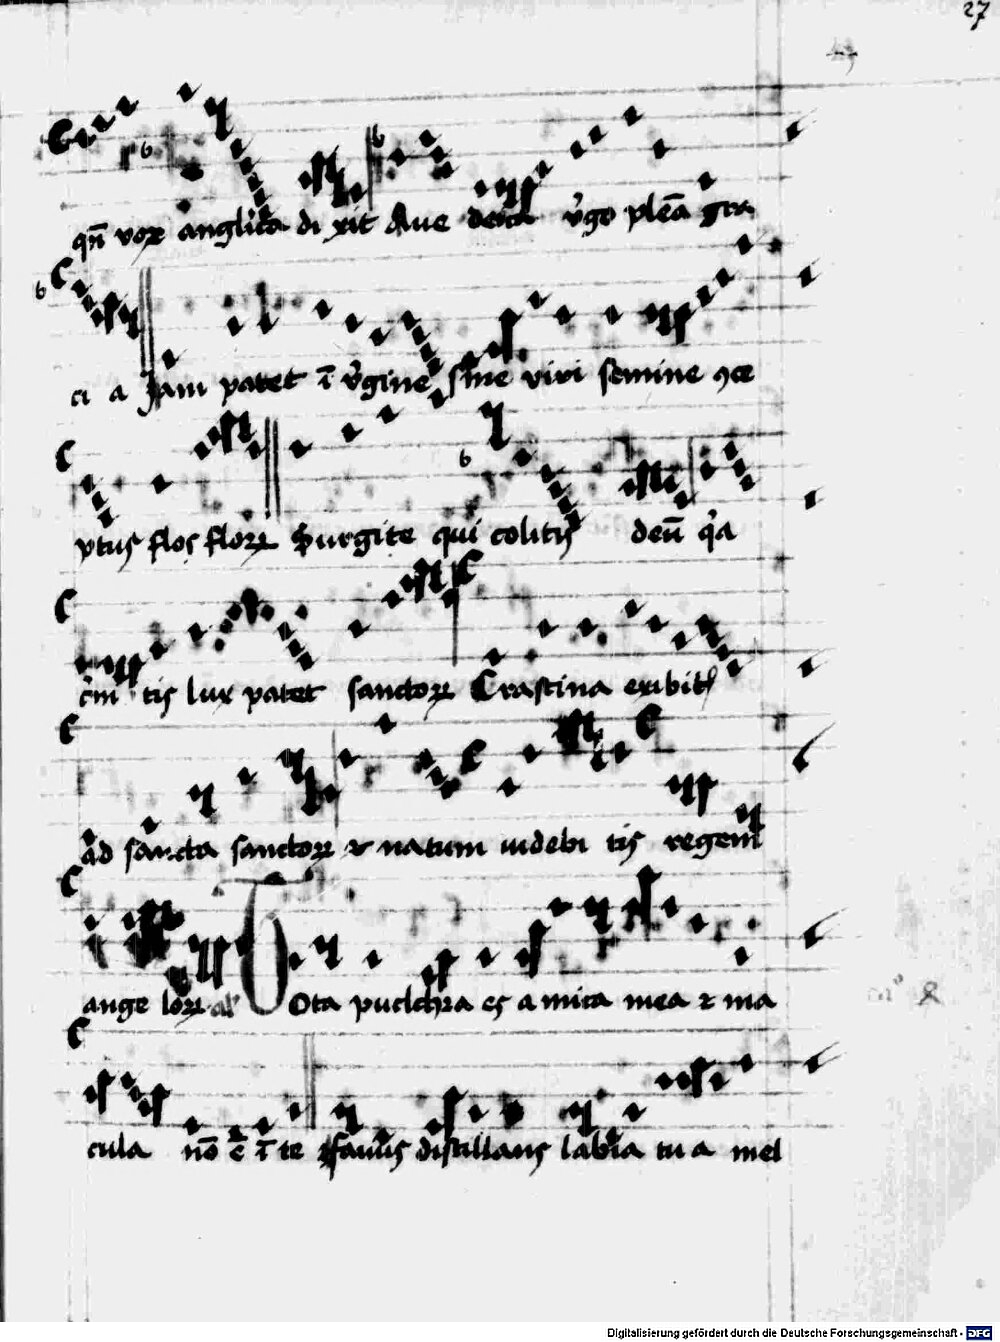 27
qn̄ vox anglica di xit Aue deica v̓go plēa gra
ci a Jam patet ī v̓gine sine viri semine ꝯce
ptus flos floꝝ Surgite qui colitis deū q̓a
tis lux patet sanctoꝝ Crastina exibit
ad sancta sanctoꝝ & natum uidebi tis regem
ange loꝝ al' Tota pulchra es amica mea & ma
cula nō ē ī te fauus distillans labia tua mel
Digitalisierung gefördert durch die Deutsche Forschungsgemeinschaft - DFG